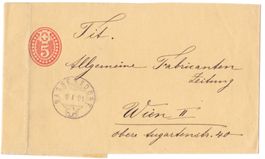 5
Tit.
Allgemeine Fabricanten
Zeitung
Wien II
obere Augartenstr. 40